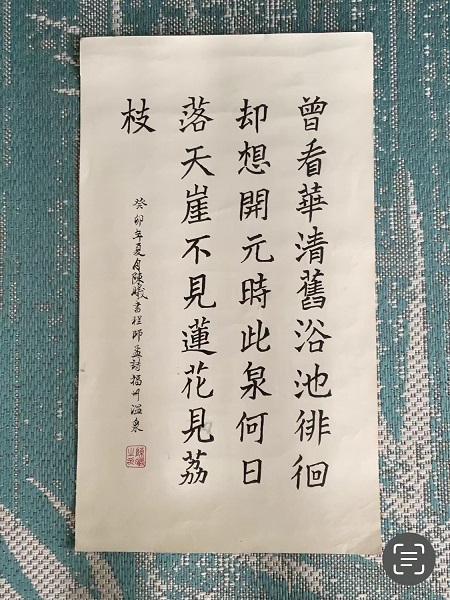 曾看華清舊浴池徘徊
却想開元時此泉何日
落天崖不見蓮花見荔
枝
癸卯年夏月陳曦書程師孟詩福州溫泉